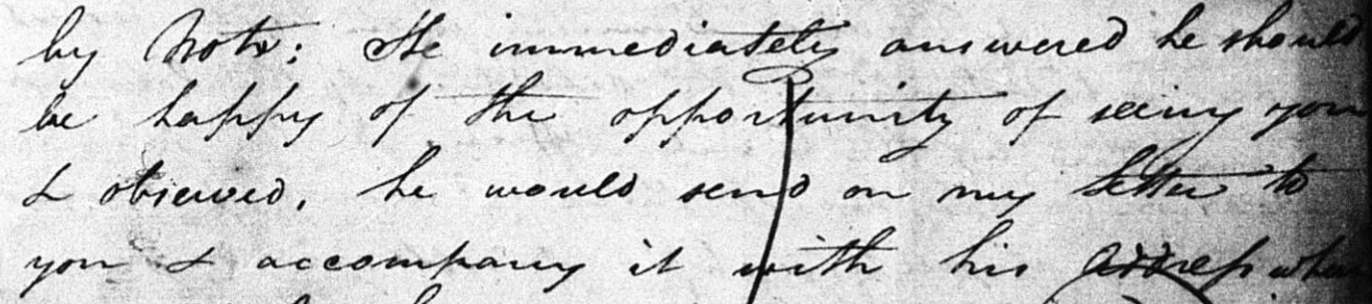 by Note: He immediately answered he should
be happy of the opportunity of seeing you
& observed, he would send on my letter to
you & accompany it with his address when